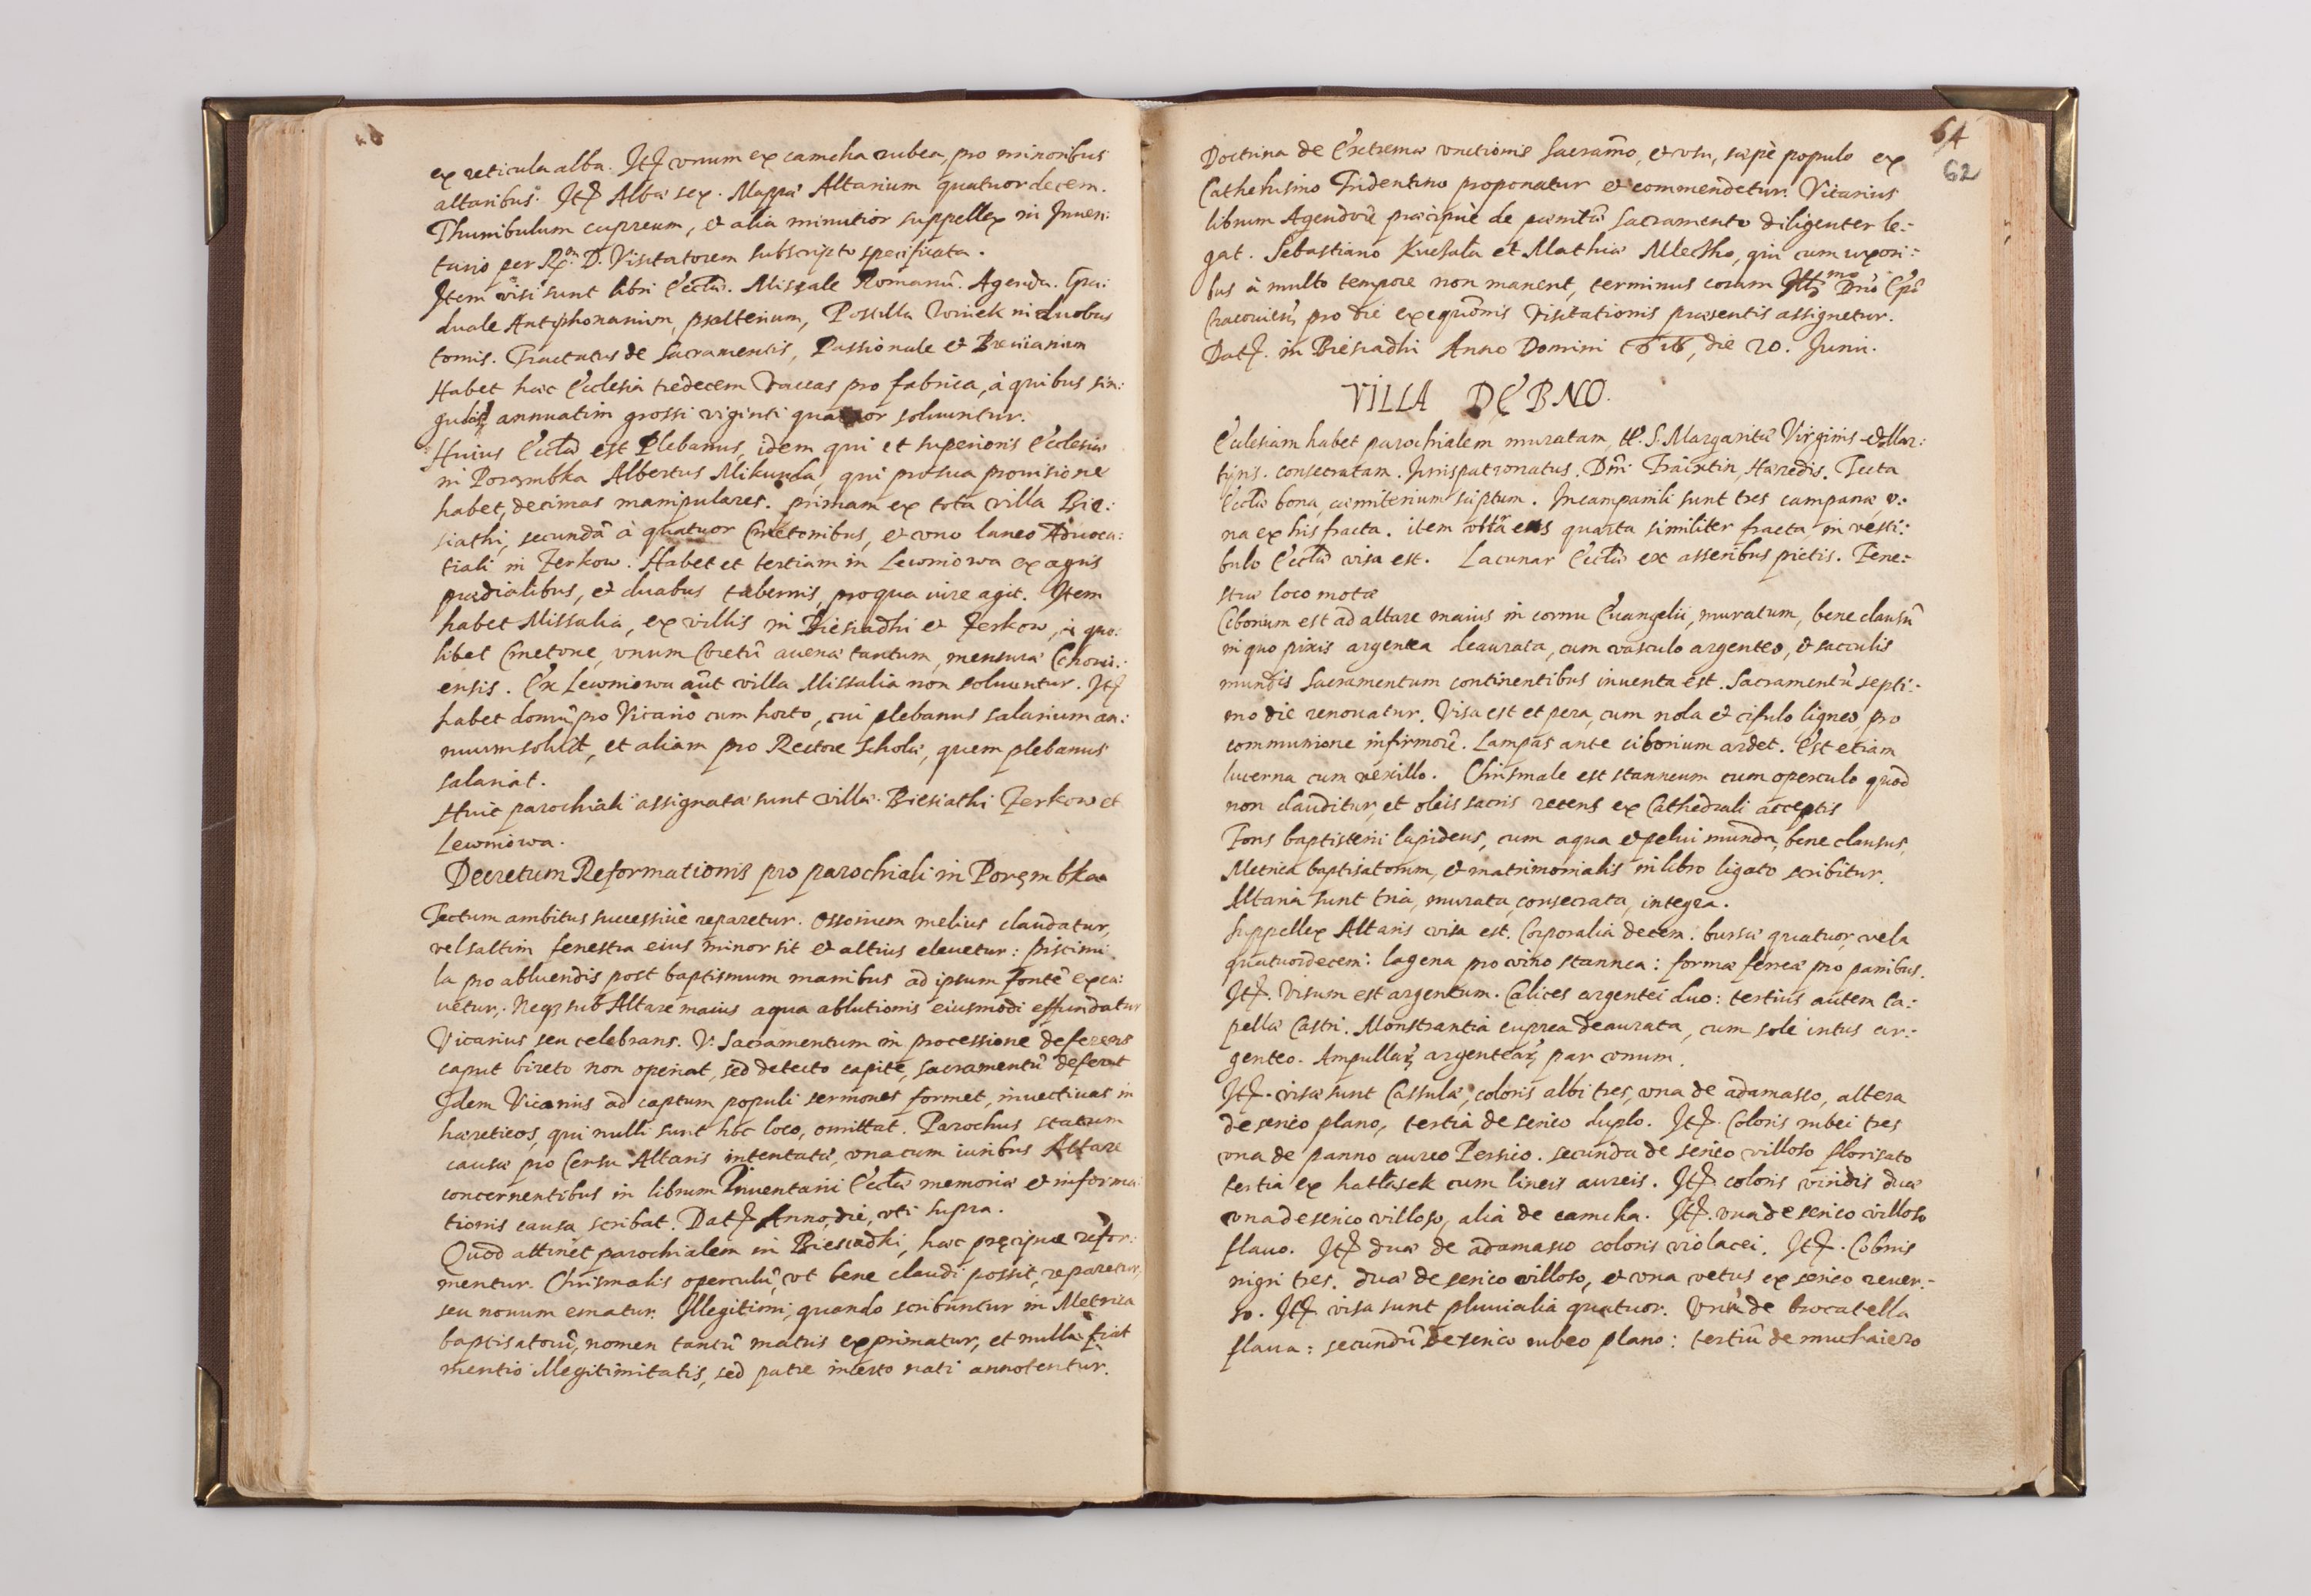 ex reticula alba. Itȝ vnum ex camcha rubea, pro minoribus
altaribus. Itȝ Albæ sex. Mappæ Altarium quatuordecem.
Thuribulum cupreum, et alia minutior suppellex in Inuen:
tario per R. D. Visitatorem subscripto specificata.
Item visi sunt libri Eccłæ. Missale Romanũ. Agenda. Gra:
duale Antiphonarium, psalterium, Postilla Wuiek in duobus
tomis. Tractatus de Sacramentis, Passionale et Breuiarium
Habet hæc Ecclesia tredecem vaccas pro fabrica, à quibus sin:
gulis annuatim grossi viginti quatuor soluuntur.
Huius Eccłæ est Plebanus, idem qui et superioris Ecclesiæ
in Porąmbka Albertus Mikunda, qui pro sua prouisione
habet, decimas manipulares. primam ex tota villa Bie:
siathi, secundã à quatuor Cmetonibus, et vno laneo Aduoca:
tiali in Zerkow. Habet et tertiam in Lewniowa ex agris
prædialibus, et duabus tabernis, pro qua iure agit. Item
habet Missalia, ex villis in Biesiadhi et Zerkow, à quo:
libet Cmetone, vnum Coretũ auenæ tantum, mensuræ Czchoui:
ensis. Ex Lewniowa aũt villa Missalia non soluuntur. Itȝ
habet domũ pro Vicario cum horto, cui plebanus salarium an:
nuum soluit, et aliam pro Rectore scholæ, quem plebanus
salariat.
Huic parochiali assignatæ sunt villæ Biesiathi Zerkow et
Lewniowa.
Decretum Reformationis pro parochiali in Poręmbka
Tectum ambitus successiue reparetur. Ossorium melius claudatur,
vel saltim fenestra eius minor sit et altius eleuetur: piscinu
la pro abluendis post baptismum manibus ad ipsum fontẽ exca:
uetur, Neqȝ sub Altare maius aqua ablutionis eiusmodi effundatur
Vicarius seu celebrans. V. Sacramentum in processione deferens
caput bireto non operiat, sed detecto capite, sacramentũ deferat
Idem Vicarius ad captum populi sermones formet, inuectiuas in
hæreticos, qui nulli sunt hoc loco, omittat. Parochus statum
causæ pro Censu Altaris intentatæ, vna cum iuribus Altare
concernentibus in librum Inuentarii Eccłæ memoriæ et informa
tionis causa scribat. Datȝ Anno, die, vti supra.
Quod attinet parochialem in Biesiadhi, hæc pręcipue refor:
mentur. Chrismalis operculũ, vt bene claudi possit, reparetur,
seu nouum ematur. Illegitimi, quando scribuntur in Metrica
baptisatorũ, nomen tantũ matris exprimatur, et nulla fiat
mentio illegitimitatis, sed patre incerto nati annotentur.
64
62
Doctrina de Extremæ vnctionis Sacramẽo, et vsu, sæpè populo ex
Cathehisino Tridentino proponatur et commendetur. Vicarius
librum Agendorũ præcipuè de pænitẽæ Sacramento diligenter le:
gat. Sebastiano Kuchała et Mathiæ Mlecsko, qui cum vxori:
bus à multo tempore non manent, terminus coram Illmo Dnõ Epõ
Cracouieñ pro die exequõnis Visitationis præsentis assignetur.
Datȝ. in Biesiadhi Anno Domini 1618, die 20. Junii.
VILLA DĘBNO.
Ecclesiam habet parochialem muratam, tť. S. Margaritæ Virginis et Mar:
tyris. consecratam. Jurispatronatus. Dñi Tráixtin, Hæredis. Tecta
Eccłæ bona, cæmiterium sæptum. In campanili sunt tres campanæ, v:
na ex his fracta. item quarta similiter fracta, in vesti:
bulo Eccłæ visa est. Lacunar Eccłæ ex asseribus pictis. Fene:
stræ loco motæ
Ciborium est ad altare maius in cornu Euangelii, muratum, bene clausũ
in quo pixis argentea deaurata, cum vasculo argenteo, et sacculis
mundis Sacramentum continentibus inuenta est. Sacramentũ septi:
mo die renouatur. Visa est et pera, cum nola et cifulo ligneo pro
communione infirmorũ. Lampas ante ciborium ardet. Est etiam
lucerna cum vexillo. Chrismale est stanneum cum operculo quod
non clauditur, et oleis sacris recens ex Cathedrali acceptis
Fons baptisterii lapideus, cum aqua et pelui munda, bene clausus,
Metrica baptisatorum, et matrimonialis in libro ligato scribitur.
Altaria sunt tria, murata, consecrata, integra.
Suppellex Altaris visa est. Corporalia decem: bursæ quatuor, vela
quatuordecem: lagena pro vino stannea: formæ ferreæ pro panibus.
Itȝ. Visum est argentum. Calices argentei duo: tertius autem Ca:
pellæ Castri. Monstrantia cuprea deaurata, cum sole intus ar:
genteo. Ampullarȝ argentearȝ par vnum.
Itȝ. visæ sunt Cassulæ, coloris albi tres, vna de adamasco, altera
de serico plano, tertia de serico duplo. Itȝ. Coloris rubei tres
vna de panno aureo Persico. secunda de serico villoso florisato
tertia ex hatłasek cum lineis aureis. Itȝ coloris viridis duæ
vna de serico villoso, alia de camcha. Itȝ. vna de serico villoso
flauo. Itȝ duæ de adamasco coloris violacei. Itȝ. Coloris
nigri tres. duæ de serico villoso, et vna vetus ex serico reuer:
so. Itȝ visa sunt pluuialia quatuor. Vnũ de brocatella
flaua: secundũ de serico rubeo plano: tertiũ de muchaiero